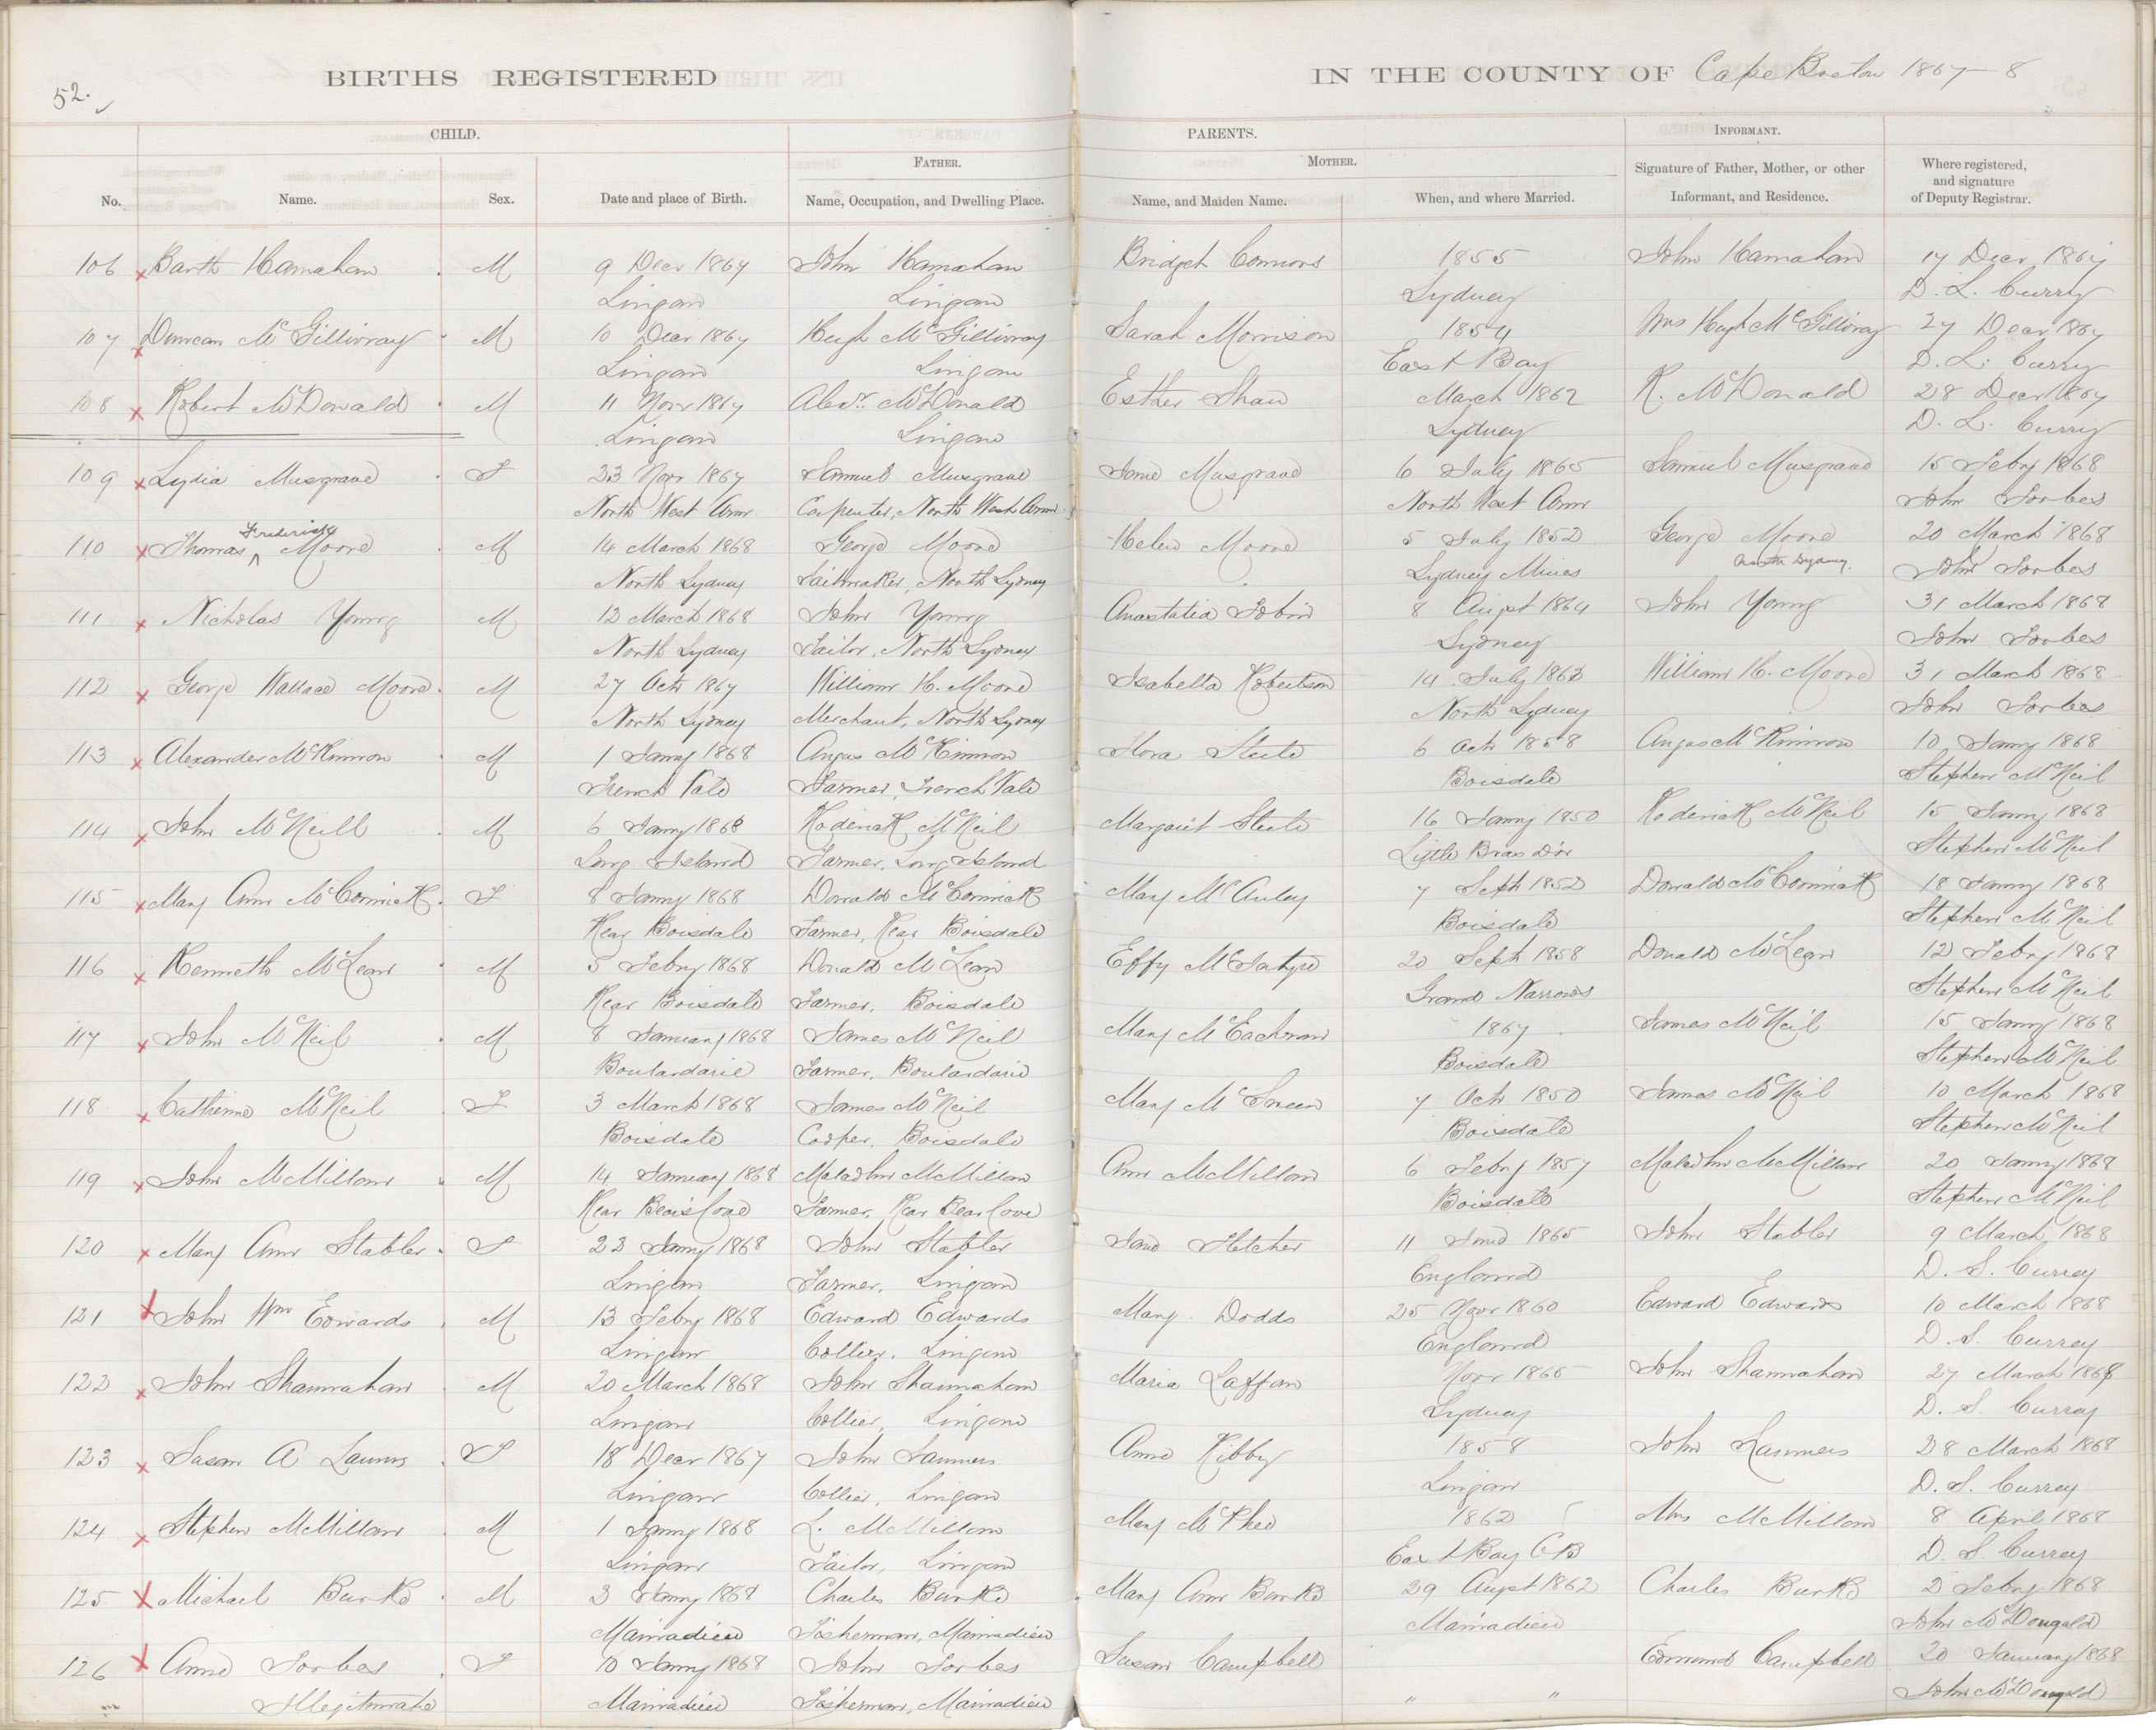 52.
BIRTHS REGISTERED IN THE COUNTY OF Cape Breton 1867-8
CHILD. PARENTS. INFORMANT.
FATHER. MOTHER.
No. Name. Sex. Date and place of Birth. Name, Occupation, and Dwelling Place. Name, and Maiden Name. When, and where Married. Signature of Father, Mother, or other Informant, and Residence. Where registered, and signature of Deputy Registrar.
106 Barth Hamahan M 9 Decr 1867 John Hamahan Bridget Connors 1855 John Hamahan 17 Decr 1867
Lingan Lingan Sydney D. L. Curry
107 Duncan McGillivray M 10 Decr 1867 Hugh McGillivray Sarah Morrison 1854 Mrs Hugh McGillivray 27 Decr 1867
Lingan Lingan East Bay D. L. Curry
108 Robert McDonald M 11 Novr 1867 Alexr. McDonald Esther Shaw March 1862 R. McDonald 28 Decr 1867
Lingan Lingan Sydney D. L. Curry
109 Lydia Musgrave F 23 Novr 1867 Samuel Musgrave Jane Musgrave 6 July 1865 Samuel Musgrave 15 Febry 1868
North West Arm Carpenter, North West Arm North West Arm John Forbes
110 Thomas Frederick Moore M 14 March 1868 George Moore Helen Moore 5 July 1852 George Moore 20 March 1868
North Sydney Sailmaker, North Sydney Sydney Mines North Sydney. John Forbes
111 Nicholas Young M 12 March 1868 John Young Anastatia Tobin 8 Augst 1864 John Young 31 March 1868
North Sydney Tailor, North Sydney Sydney John Forbes
112 George Wallace Moore M 27 Octr 1867 William H. Moore Isabella Robertson 14 July 1863 William H. Moore 31 March 1868
North Sydney Merchant, North Sydney North Sydney John Forbes
113 Alexander McKinnon M 1 Janry 1868 Angus McKinnon Flora Steele 6 Octr 1858 Angus McKinnon 10 Janry 1868
French Vale Farmer, French Vale Boisdale Stephen McNeil
114 John McNeill M 6 Janry 1868 Roderick McNeil Margaret Steele 16 Janry 1850 Roderick McNeil 15 Janry 1868
Long Island Farmer, Long Island Little Bras D'or Stephen McNeil
115 Mary Ann McCormick F 8 Janry 1868 Donald McCormick Mary McAuley 7 Sept 1852 Donald McCormick 18 Janry 1868
Rear Boisdale Farmer, Rear Boisdale Boisdale Stephen McNeil
116 Kenneth McLean M 5 Febry 1868 Donald McLean Effy McIntyre 20 Sept 1858 Donald McLean 12 Febry 1868
Rear Boisdale Farmer, Boisdale Grand Narrows Stephen McNeil
117 John McNeil M 8 January 1868 James McNeil Mary McEachran 1867 James McNeil 15 Janry 1868
Boulardarie Farmer, Boulardarie Boisdale Stephen McNeil
118 Catherine McNeil F 3 March 1868 James McNeil Mary McSween 7 Octr 1850 James McNeil 10 March 1868
Boisdale Cooper, Boisdale Boisdale Stephen McNeil
119 John McMillan M 14 January 1868 McMillan Ann McMillan 6 Febry 1857 McMillan 20 Janry 1868
Rear Beais Cove Farmer, Rear Bear Cove Boisdale Stephen McNeil
120 Mary Ann Stabler F 22 Janry 1868 John Stabler Jane Fletcher 11 June 1865 John Stabler 9 March 1868
Lingan Farmer, Lingan England D. S. Currey
121 John Wm Edwards M 13 Febry 1868 Edward Edwards Mary Dodds 25 Novr 1860 Edward Edwards 10 March 1868
Lingan Collier, Lingan England D. S. Currey
122 John Shannahan M 20 March 1868 John Shannahan Maria Laffan Novr 1865 John Shannahan 27 March 1868
Lingan Collier, Lingan Sydney D. S. Currey
123 Susan A F 18 Decr 1867 John Anne Kibby 1858 John 28 March 1868
Lingan Collier, Lingan Lingan D. S. Currey
124 Stephen McMillan M 1 Janry 1868 L. McMillan Mary McPhee 1862 Mrs McMillan 8 April 1868
Lingan Tailor, Lingan East Bay CB D. S. Currey
125 Michael Burke M 3 Janry 1868 Charles Burke Mary Ann Burke 29 Augst 1862 Charles Burke 2 Febry 1868
Mainadieu Fisherman, Mainadieu Mainadieu John McDougald
126 Anne Forbes F 10 Janry 1868 John Forbes Susan Campbell Edmund Campbell 20 January 1868
Illegitimate Mainadieu Fisherman, Mainadieu " " John McDougald